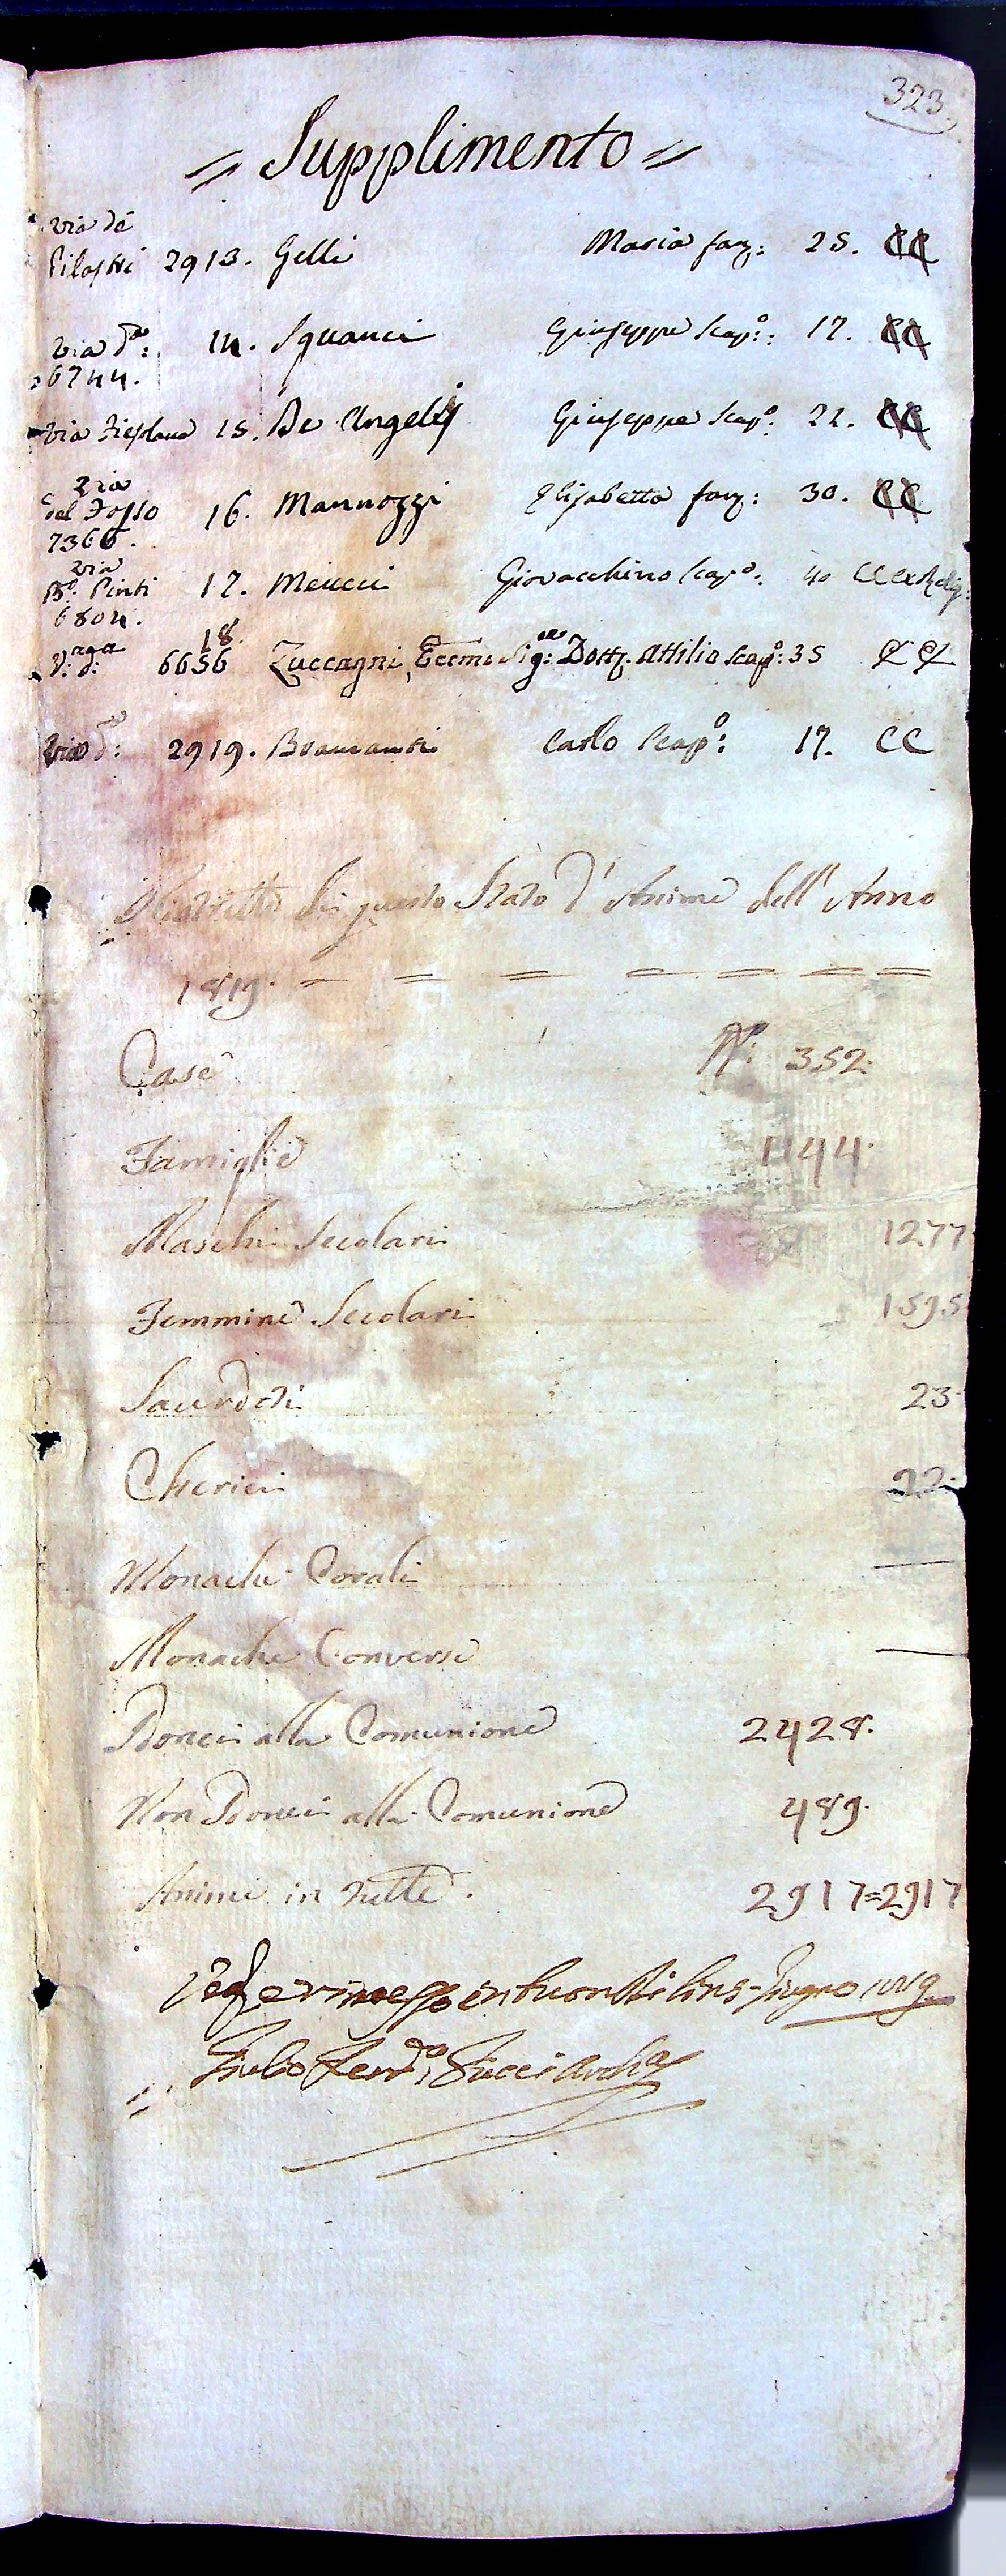 323.
= Supplimento =
via de
Pilastri 2913. Gelli Maria fanz: 25. CC
via do: 14. Squanci Giuseppe scapo: 17. CC
6744.
via Fiesolana 15. De Angelis Giuseppe scapo: 22. CC
via
del Fosso 16. Mannozzi Elisabetta fanz: 30. CC
7366.
via
Bo. Pinti 17. Meucci Giovacchino scapo: 40 CC exRelig:
6804.
18.
6656 Zuccagni, Eccmo Sig: Dott. Attilio scapo: 35 CC
via do: 2919. Bramanti Carlo scapo: 17. CC
Ristretto di questo Stato d'Anime dell'Anno
1819. = = = = = = =
Case No: 352.
Famiglie 1144.
Maschi Secolari 1277
Femmine Secolari 1595
Sacerdoti 23
Cherici 22.
Monache Corali —
Monache Converse —
Idonei alla Comunione 2428.
Non Idonei alla Comunione 489.
Anime in tutte. 2917=2917